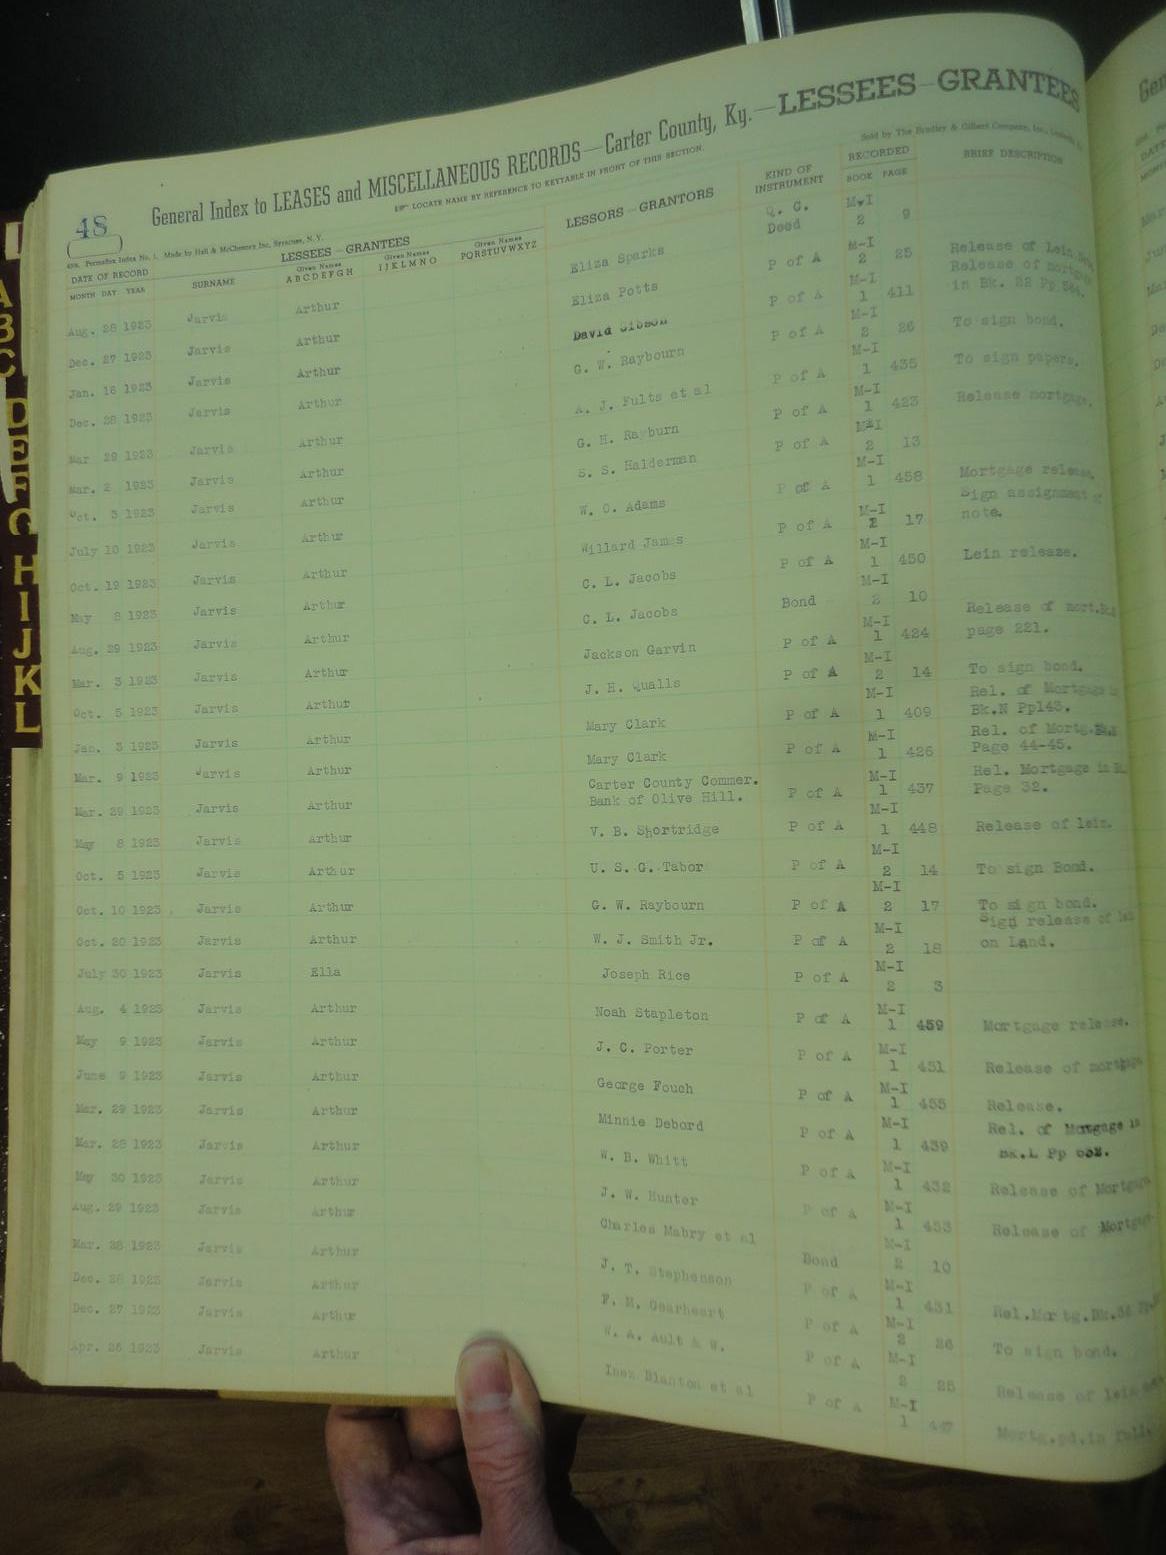 48
General Index to LEASES and MISCELLANEOUS RECORDS—Carter County, Ky.—LESSEES—GRANTEES
LOCATE NAME BY REFERENCE TO KEYTABLE IN FRONT OF THIS SECTION.
Permadex Index No. 1. Made by Hall & McChesney Inc, Syracuse, N. Y.
Sold by The Bradley & Gilbert Company, Inc.,
DATE OF RECORD LESSEES—GRANTEES LESSORS—GRANTORS KIND OF INSTRUMENT RECORDED BRIEF DESCRIPTION
MONTH DAY YEAR SURNAME Given Names ABCDEFGH Given Names IJKLMNO Given Names PQRSTUVWXYZ BOOK PAGE
Aug. 28 1923 Jarvis Arthur Eliza Sparks Q. C. Deed M-I 2 9
Dec. 27 1923 Jarvis Arthur Eliza Potts P of A M-I 2 25 Release of Lein
Jan. 16 1923 Jarvis Arthur David Gibson P of A M-I 1 411 Release of mortgage in Bk. 22 Pp 544.
Dec. 28 1923 Jarvis Arthur G. W. Raybourn P of A M-I 2 26 To sign bond.
Mar 29 1923 Jarvis Arthur A. J. Fults et al P of A M-I 1 435 To sign papers.
Mar. 2 1923 Jarvis Arthur G. H. Rayburn P of A M-I 1 423 Release mortgage.
Oct. 3 1923 Jarvis Arthur S. S. Halderman P of A M-I 2 13
July 10 1923 Jarvis Arthur W. O. Adams P of A M-I 1 458 Mortgage release.
Oct. 19 1923 Jarvis Arthur Willard James P of A M-I 2 17 Sign assignment of note.
May 8 1923 Jarvis Arthur C. L. Jacobs P of A M-I 1 450 Lein release.
Aug. 29 1923 Jarvis Arthur C. L. Jacobs Bond M-I 2 10
Mar. 3 1923 Jarvis Arthur Jackson Garvin P of A M-I 1 424 Release of mort. page 221.
Oct. 5 1923 Jarvis Arthur J. H. Qualls P of A M-I 2 14 To sign bond.
Jan. 3 1923 Jarvis Arthur Mary Clark P of A M-I 1 409 Rel. of Mortgage in Bk.N Pp143.
Mar. 9 1923 Jarvis Arthur Mary Clark P of A M-I 1 426 Rel. of Mortg. Page 44-45.
Mar. 29 1923 Jarvis Arthur Carter County Commer. Bank of Olive Hill. P of A M-I 1 437 Rel. Mortgage in Page 32.
May 8 1923 Jarvis Arthur V. B. Shortridge P of A M-I 1 448 Release of lein.
Oct. 5 1923 Jarvis Arthur U. S. G. Tabor P of A M-I 2 14 To sign Bond.
Oct. 10 1923 Jarvis Arthur G. W. Raybourn P of A M-I 2 17 To sign bond.
Oct. 20 1923 Jarvis Arthur W. J. Smith Jr. P of A M-I 2 18 Sign release of lein on Land.
July 30 1923 Jarvis Ella Joseph Rice P of A M-I 2 3
Aug. 4 1923 Jarvis Arthur Noah Stapleton P of A M-I 1 459 Mortgage release.
May 9 1923 Jarvis Arthur J. C. Porter P of A M-I 1 451 Release of mortgage
June 9 1923 Jarvis Arthur George Fouch P of A M-I 1 455 Release.
Mar. 29 1923 Jarvis Arthur Minnie Debord P of A M-I 1 439 Rel. of Mortgage in Bk.L Pp 632.
Mar. 28 1923 Jarvis Arthur W. B. Whitt P of A M-I 1 432 Release of Mortgage
May 30 1923 Jarvis Arthur J. W. Hunter P of A M-I 1 453 Release of Mortgage
Aug. 29 1923 Jarvis Arthur Charles Mabry et al Bond M-I 2 10
Mar. 28 1923 Jarvis Arthur J. T. Stephenson P of A M-I 1 431 Rel.Mortg.Bk.34
Dec. 28 1923 Jarvis Arthur F. M. Gearheart P of A M-I 2 26 To sign bond.
Dec. 27 1923 Jarvis Arthur W. A. Ault & W. P of A M-I 2 25 Release of lein
Apr. 26 1923 Jarvis Arthur Inez Blanton et al P of A M-I 1 447 Mortg.pd.in full.
A
B
C
D
E
F
G
H
I
J
K
L